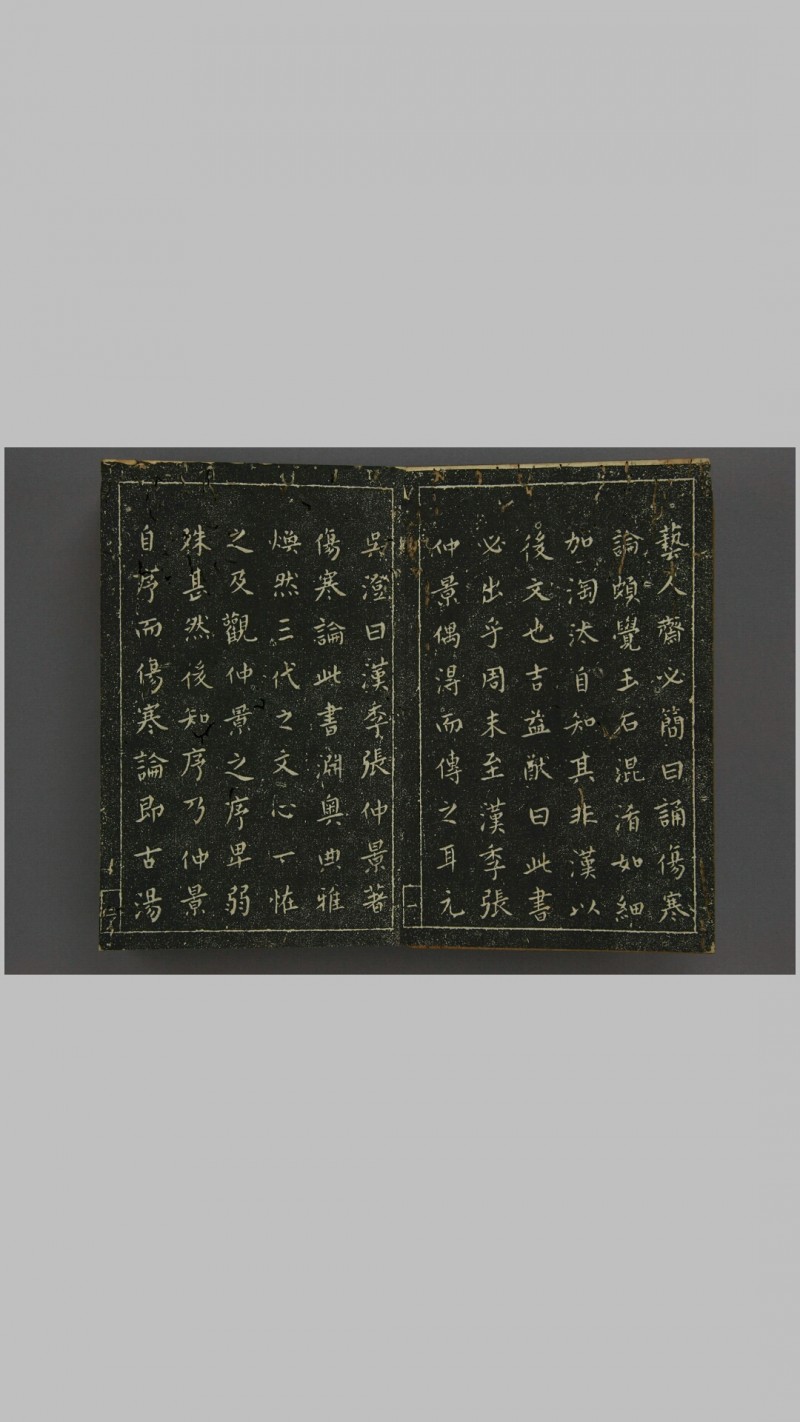 藝人齋必簡曰誦傷寒
論頗覺玉石混淆如細
加淘汰自知其非漢以
後文也吉益猷曰此書
必出乎周末至漢季張
仲景偶淂而傳之耳元
一
吳澄曰漢季張仲景著
傷寒論此書淵奧典雅
煥然三代之文心一怪
之及觀仲景之序卑弱
殊甚然後知序乃仲景
自序而傷寒論即古湯